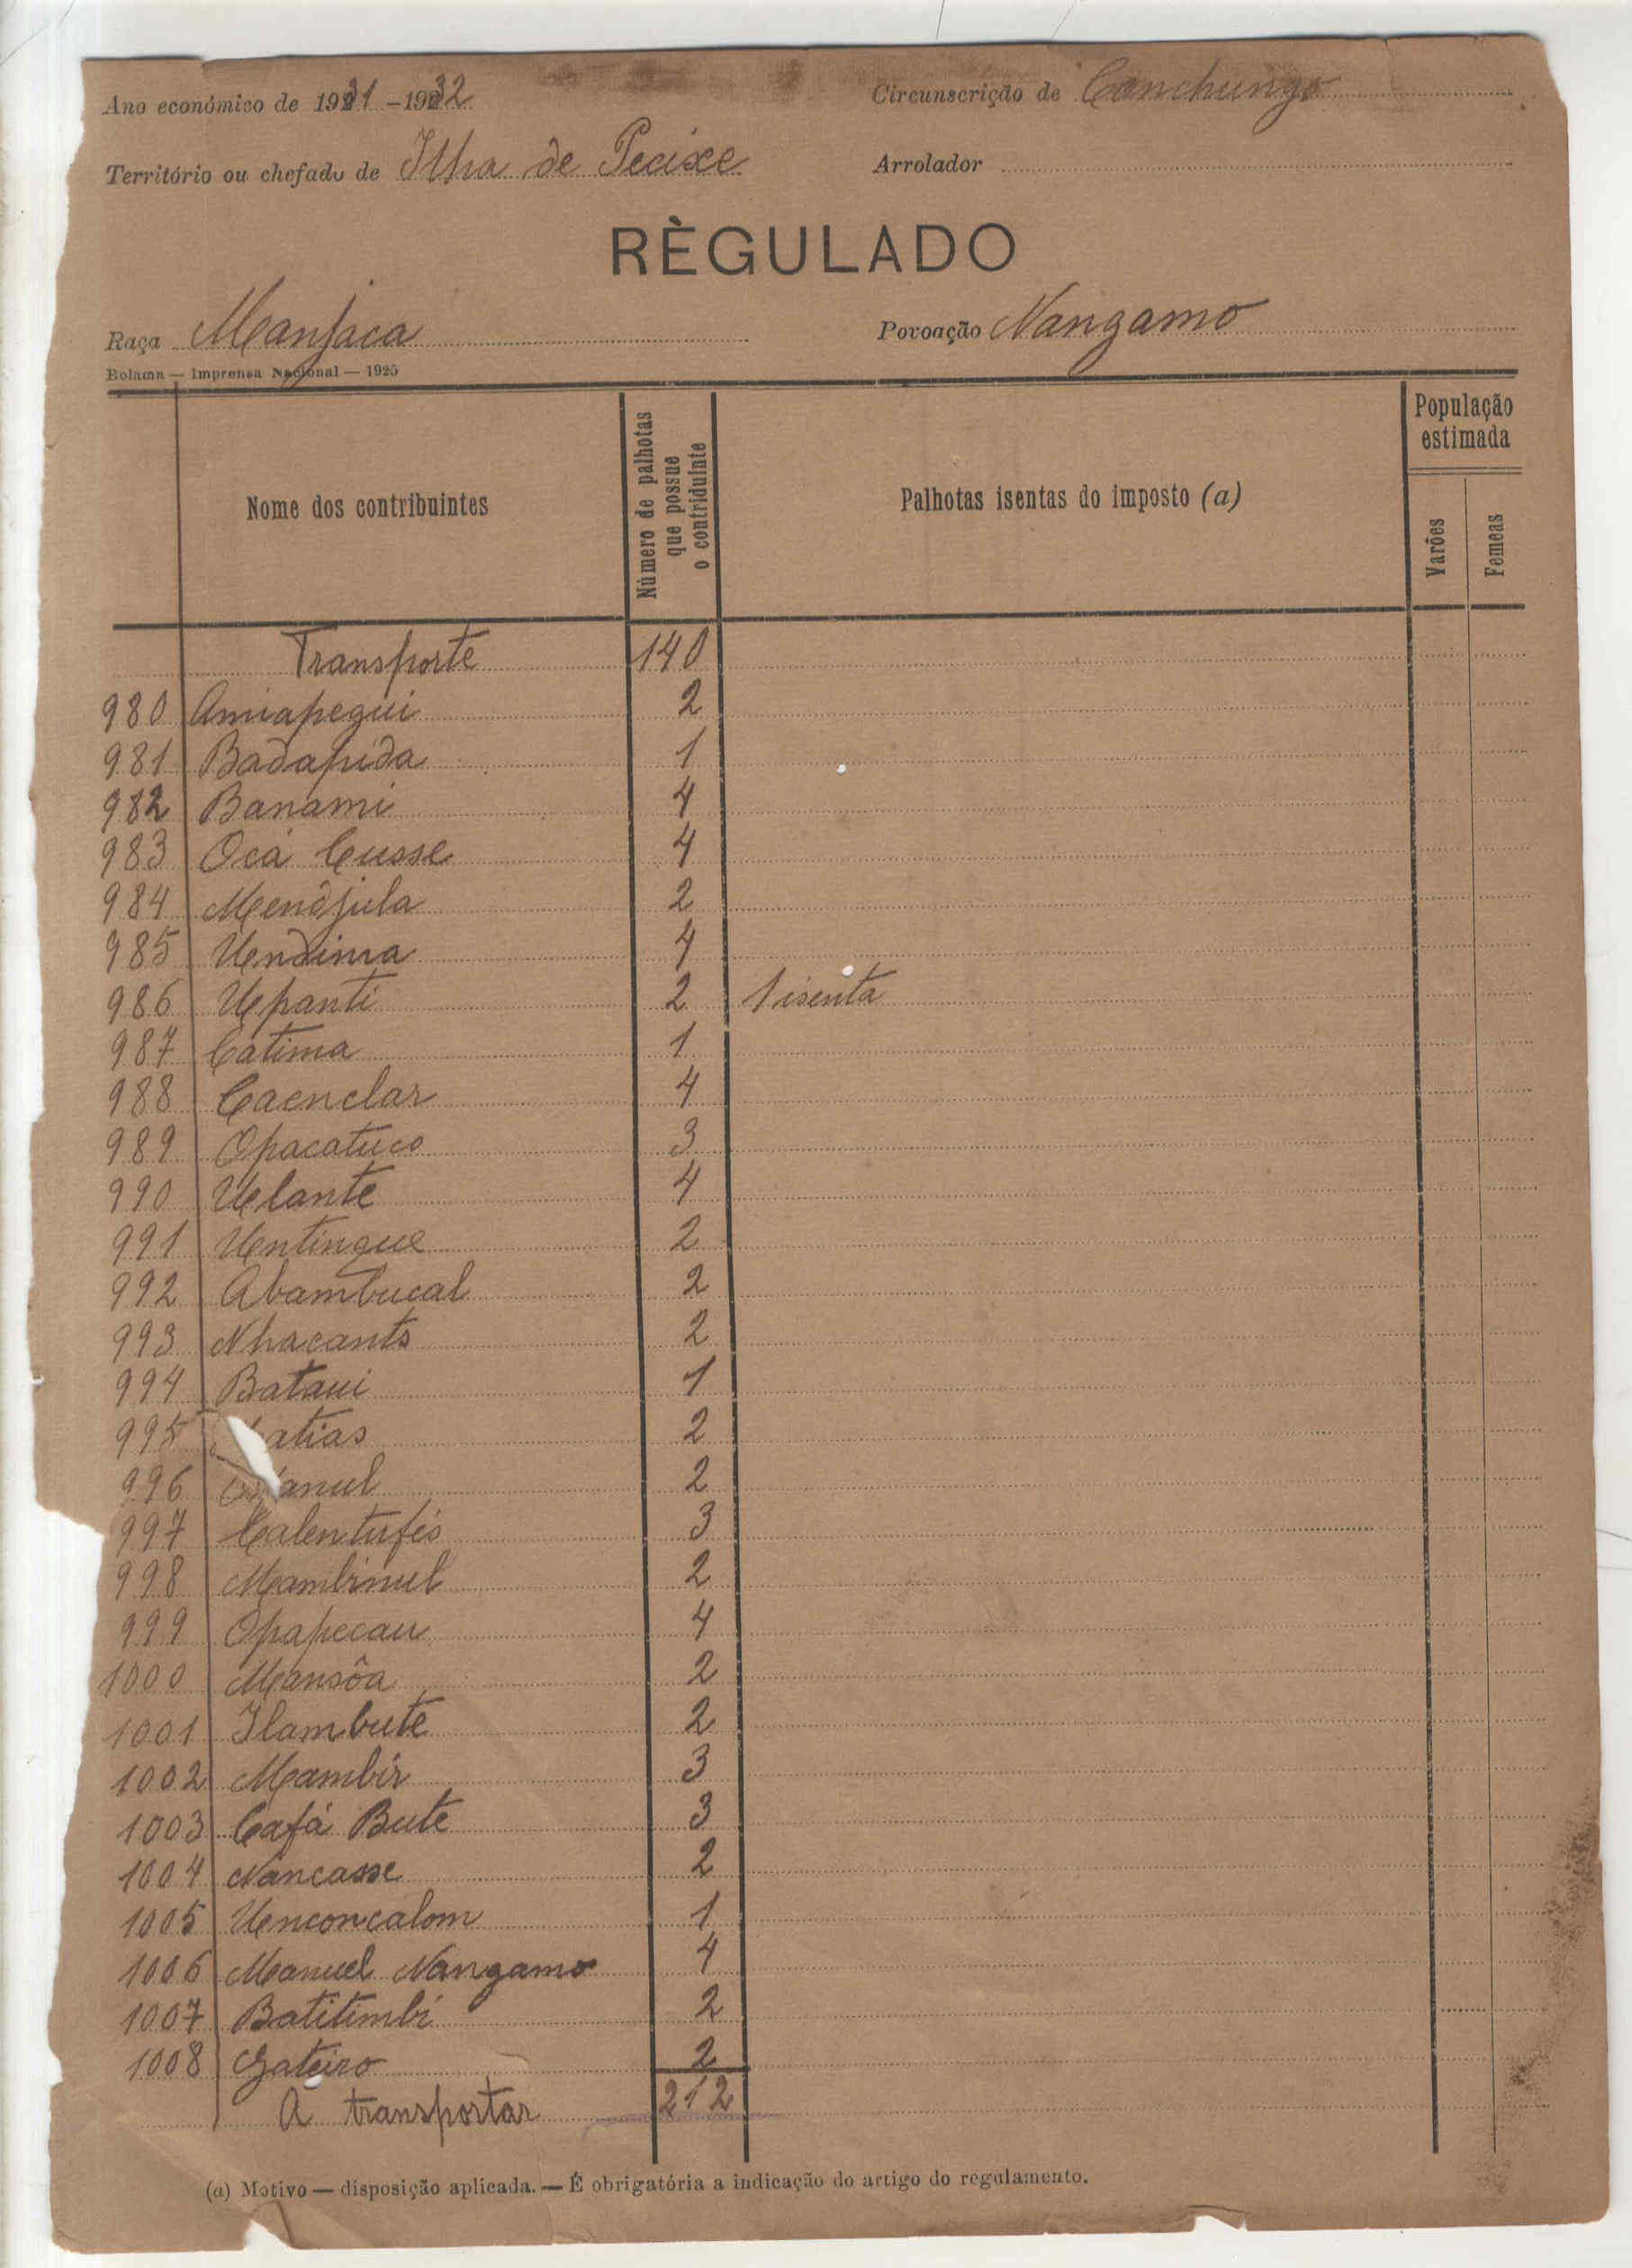 Ano económico de 1931-1932
Circunscrição de Canchungo
Território ou chefado de Ilha de Pecixe
Arrolador
RÈGULADO
Raça Manjaca
Povoação Nangamo
Bolama — Imprensa Nacional — 1925
Nome dos contribuintes
Número de palhotas que possue o contriduinte
Palhotas isentas do imposto (a)
População estimada
Varões
Femeas
Transporte 140
980 Amiapegui 2
981 Badapida 1
982 Banami 4
983 Ocá Cusse 4
984 Mendjula 2
985 Undima 4
986 Upanti 2 1 isenta
987 Catima 1
988 Caenclar 4
989 Opacatuco 3
990 Ulante 4
991 Untingue 2
992 Abambucal 2
993 Nhacants 2
994 Bataui 1
995 atias 2
996 anul 2
997 Calentufés 3
998 Mambinul 2
999 Opapecau 4
1000 Mansôa 2
1001 Ilambute 2
1002 Mambir 3
1003 Cafá Bute 3
1004 Nancasse 2
1005 Unconcalom 1
1006 Manuel Nangamo 4
1007 Batitimbi 2
1008 Gateiro 2
A transportar 212
(a) Motivo — disposição aplicada. — É obrigatória a indicação do artigo do regulamento.